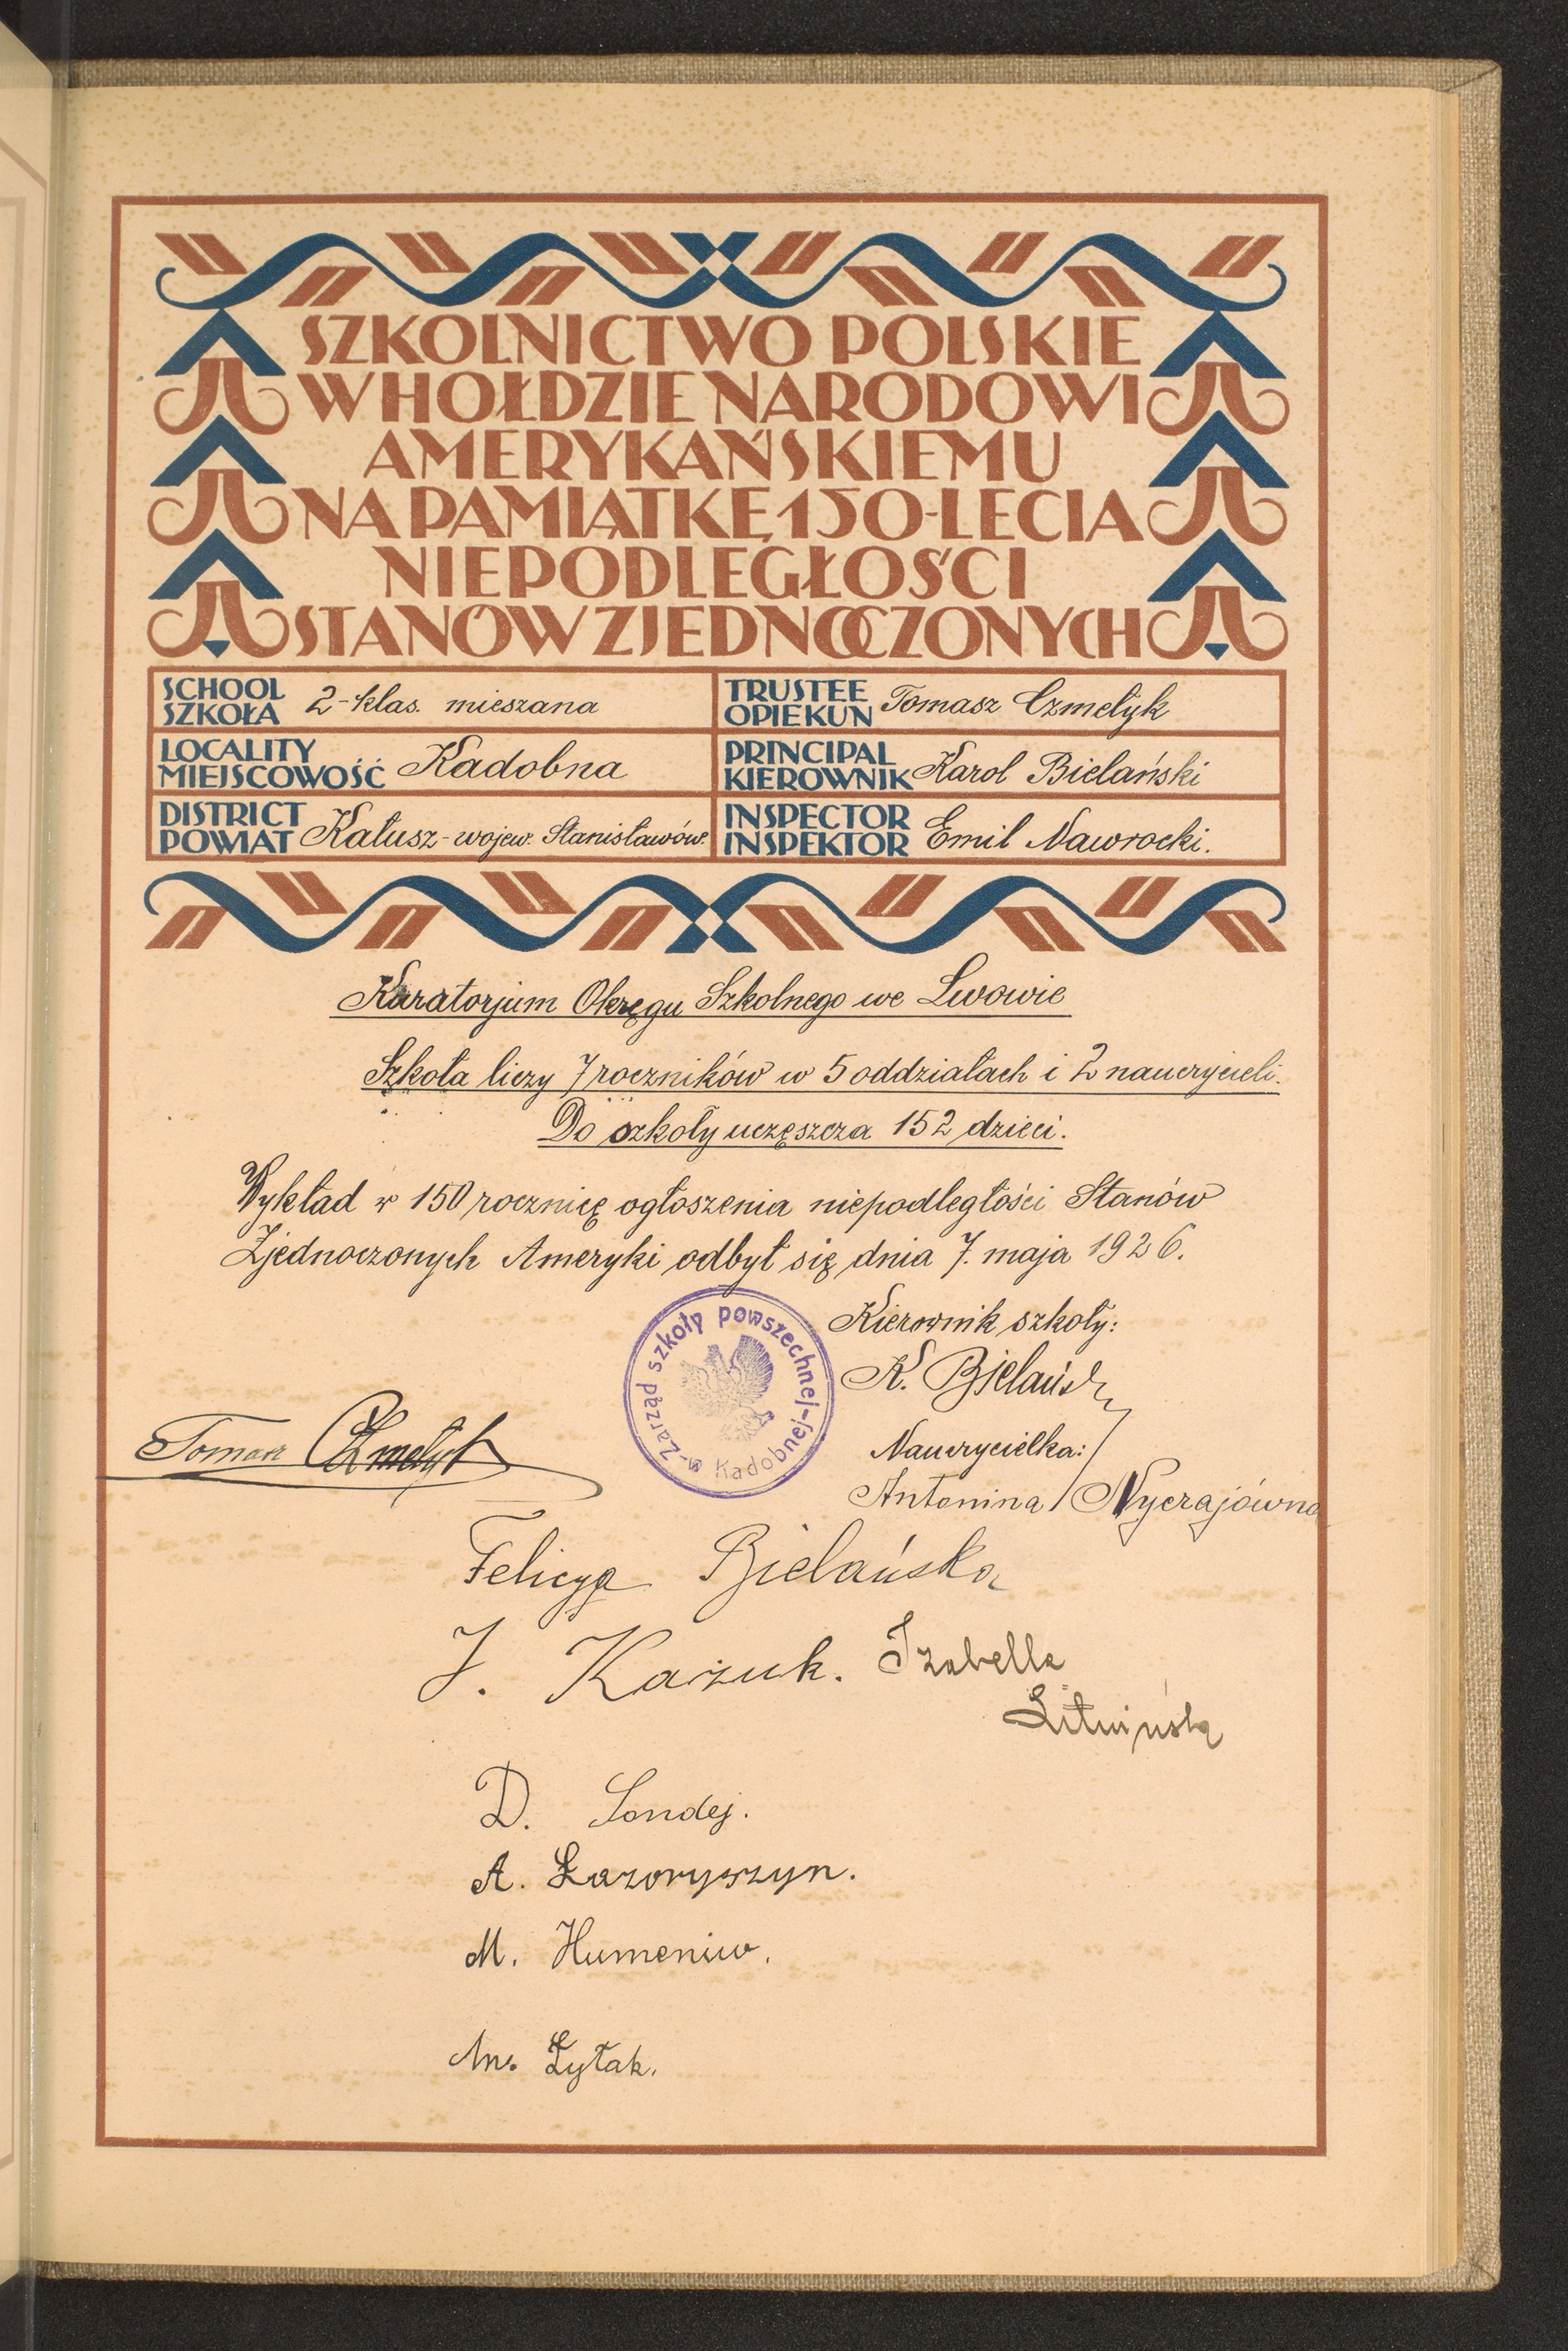 SZKOLNICTWO POLSKIE
W HOŁDZIE NARODOWI
AMERYKAŃSKIEMU
NA PAMIĄTKĘ 150-LECIA
NIEPODLEGŁOŚCI
STANÓW ZJEDNOCZONYCH
SCHOOL
SZKOŁA 2-klas. mieszana
TRUSTEE
OPIEKUN Tomasz Czmelyk
LOCALITY
MIEJSCOWOŚĆ Kadobna
PRINCIPAL
KIEROWNIK Karol Bielański
DISTRICT
POWIAT Kałusz - wojew. Stanisławów.
INSPECTOR
INSPEKTOR Emil Nawrocki.
Kuratorjum Okręgu Szkolnego we Lwowie
Szkoła liczy 7 roczników w 5 oddziałach i 2 nauczycieli.
Do szkoły uczęszcza 152 dzieci.
Wykład w 150 rocznicę ogłoszenia niepodległości Stanów
Zjednoczonych Ameryki odbył się dnia 7. maja 1926.
Zarząd szkoły powszechnej w Kadobnej
Kierownik szkoły:
K. Bielański
Tomasz Czmelyk
Nauczycielka:
Antonina Nyczajówna
Felicya Bielańska
J. Każuk. Izabella
Litwińska
D. Sondej.
A. Łazoryszyn.
M. Humeniw.
An. Łytak.